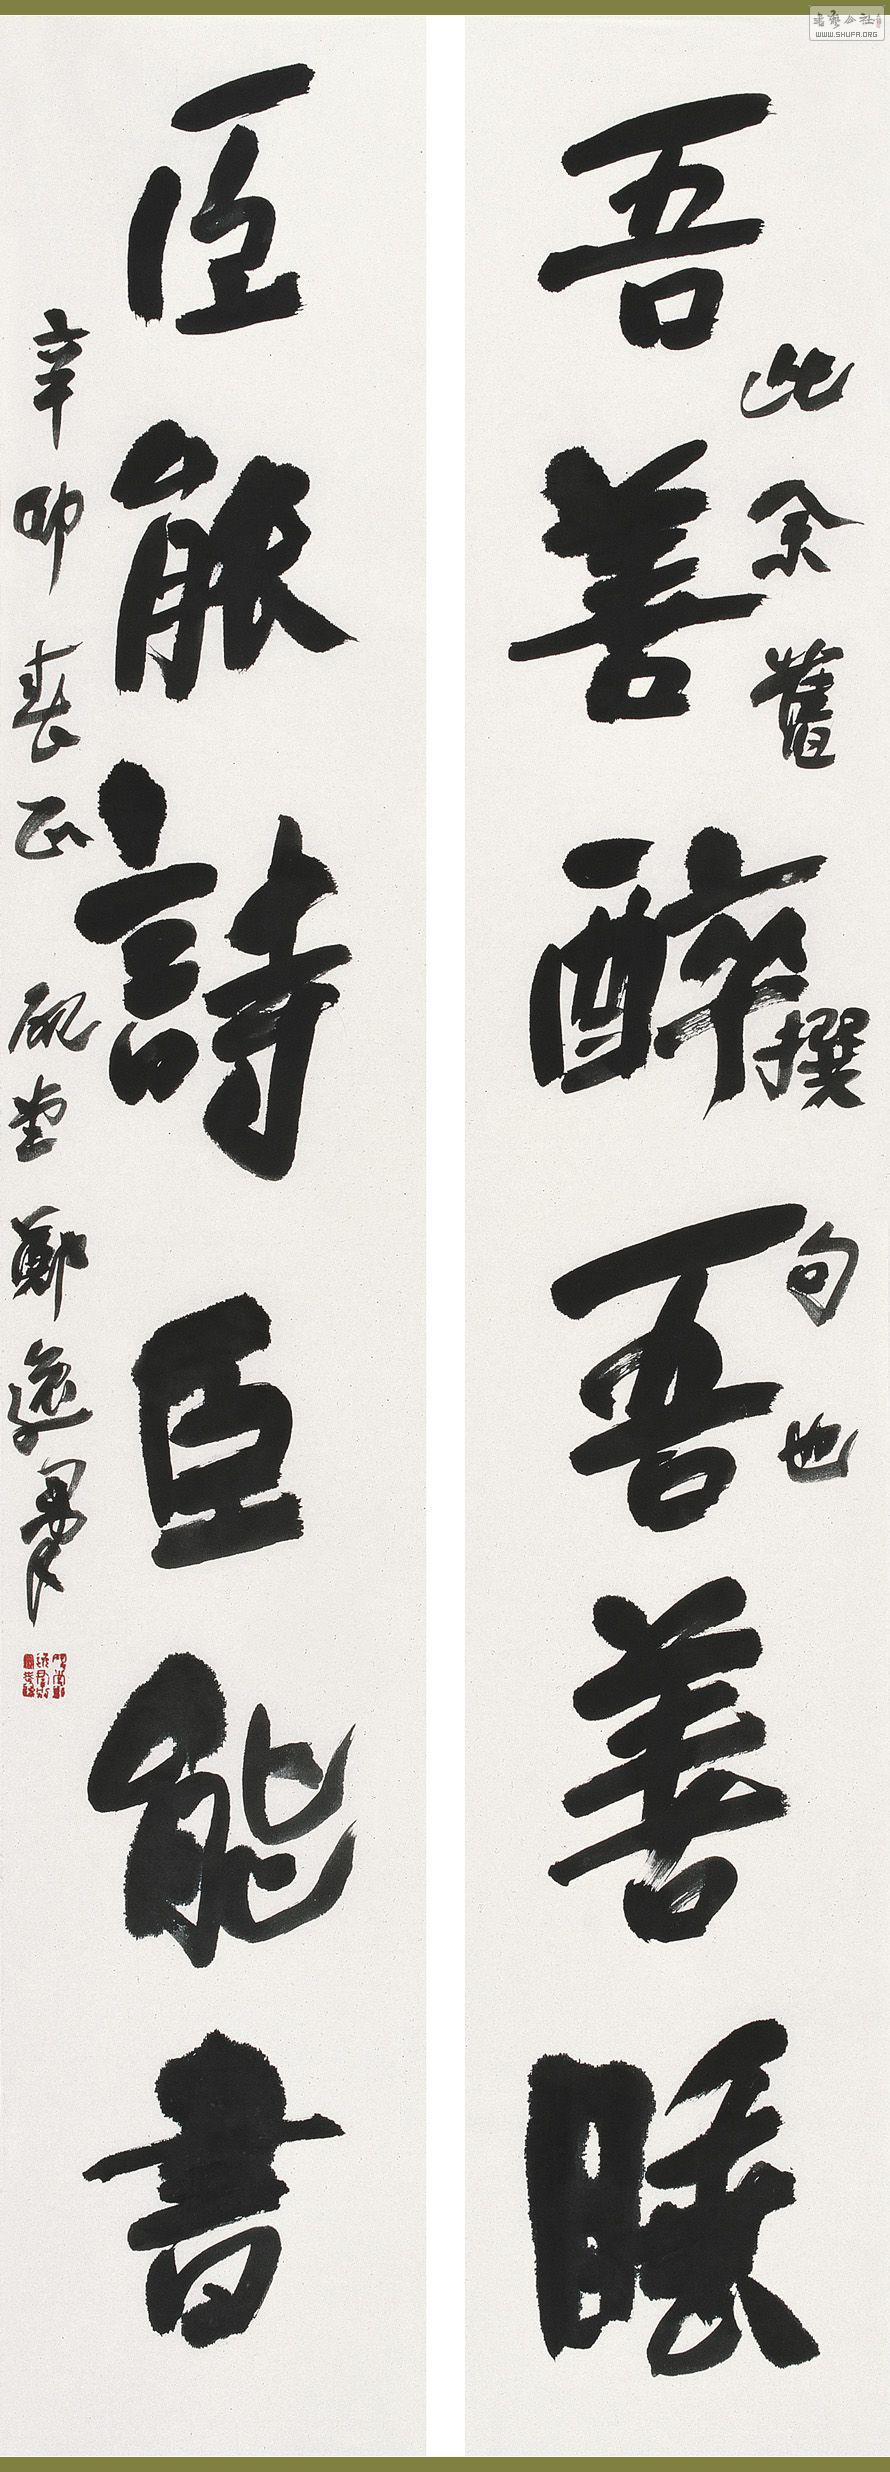 此余舊撰句也
吾善醉吾善睡
臣能詩臣能書
辛卯春正硯堂鄭
書藝公社
WWW.SHUFA.ORG